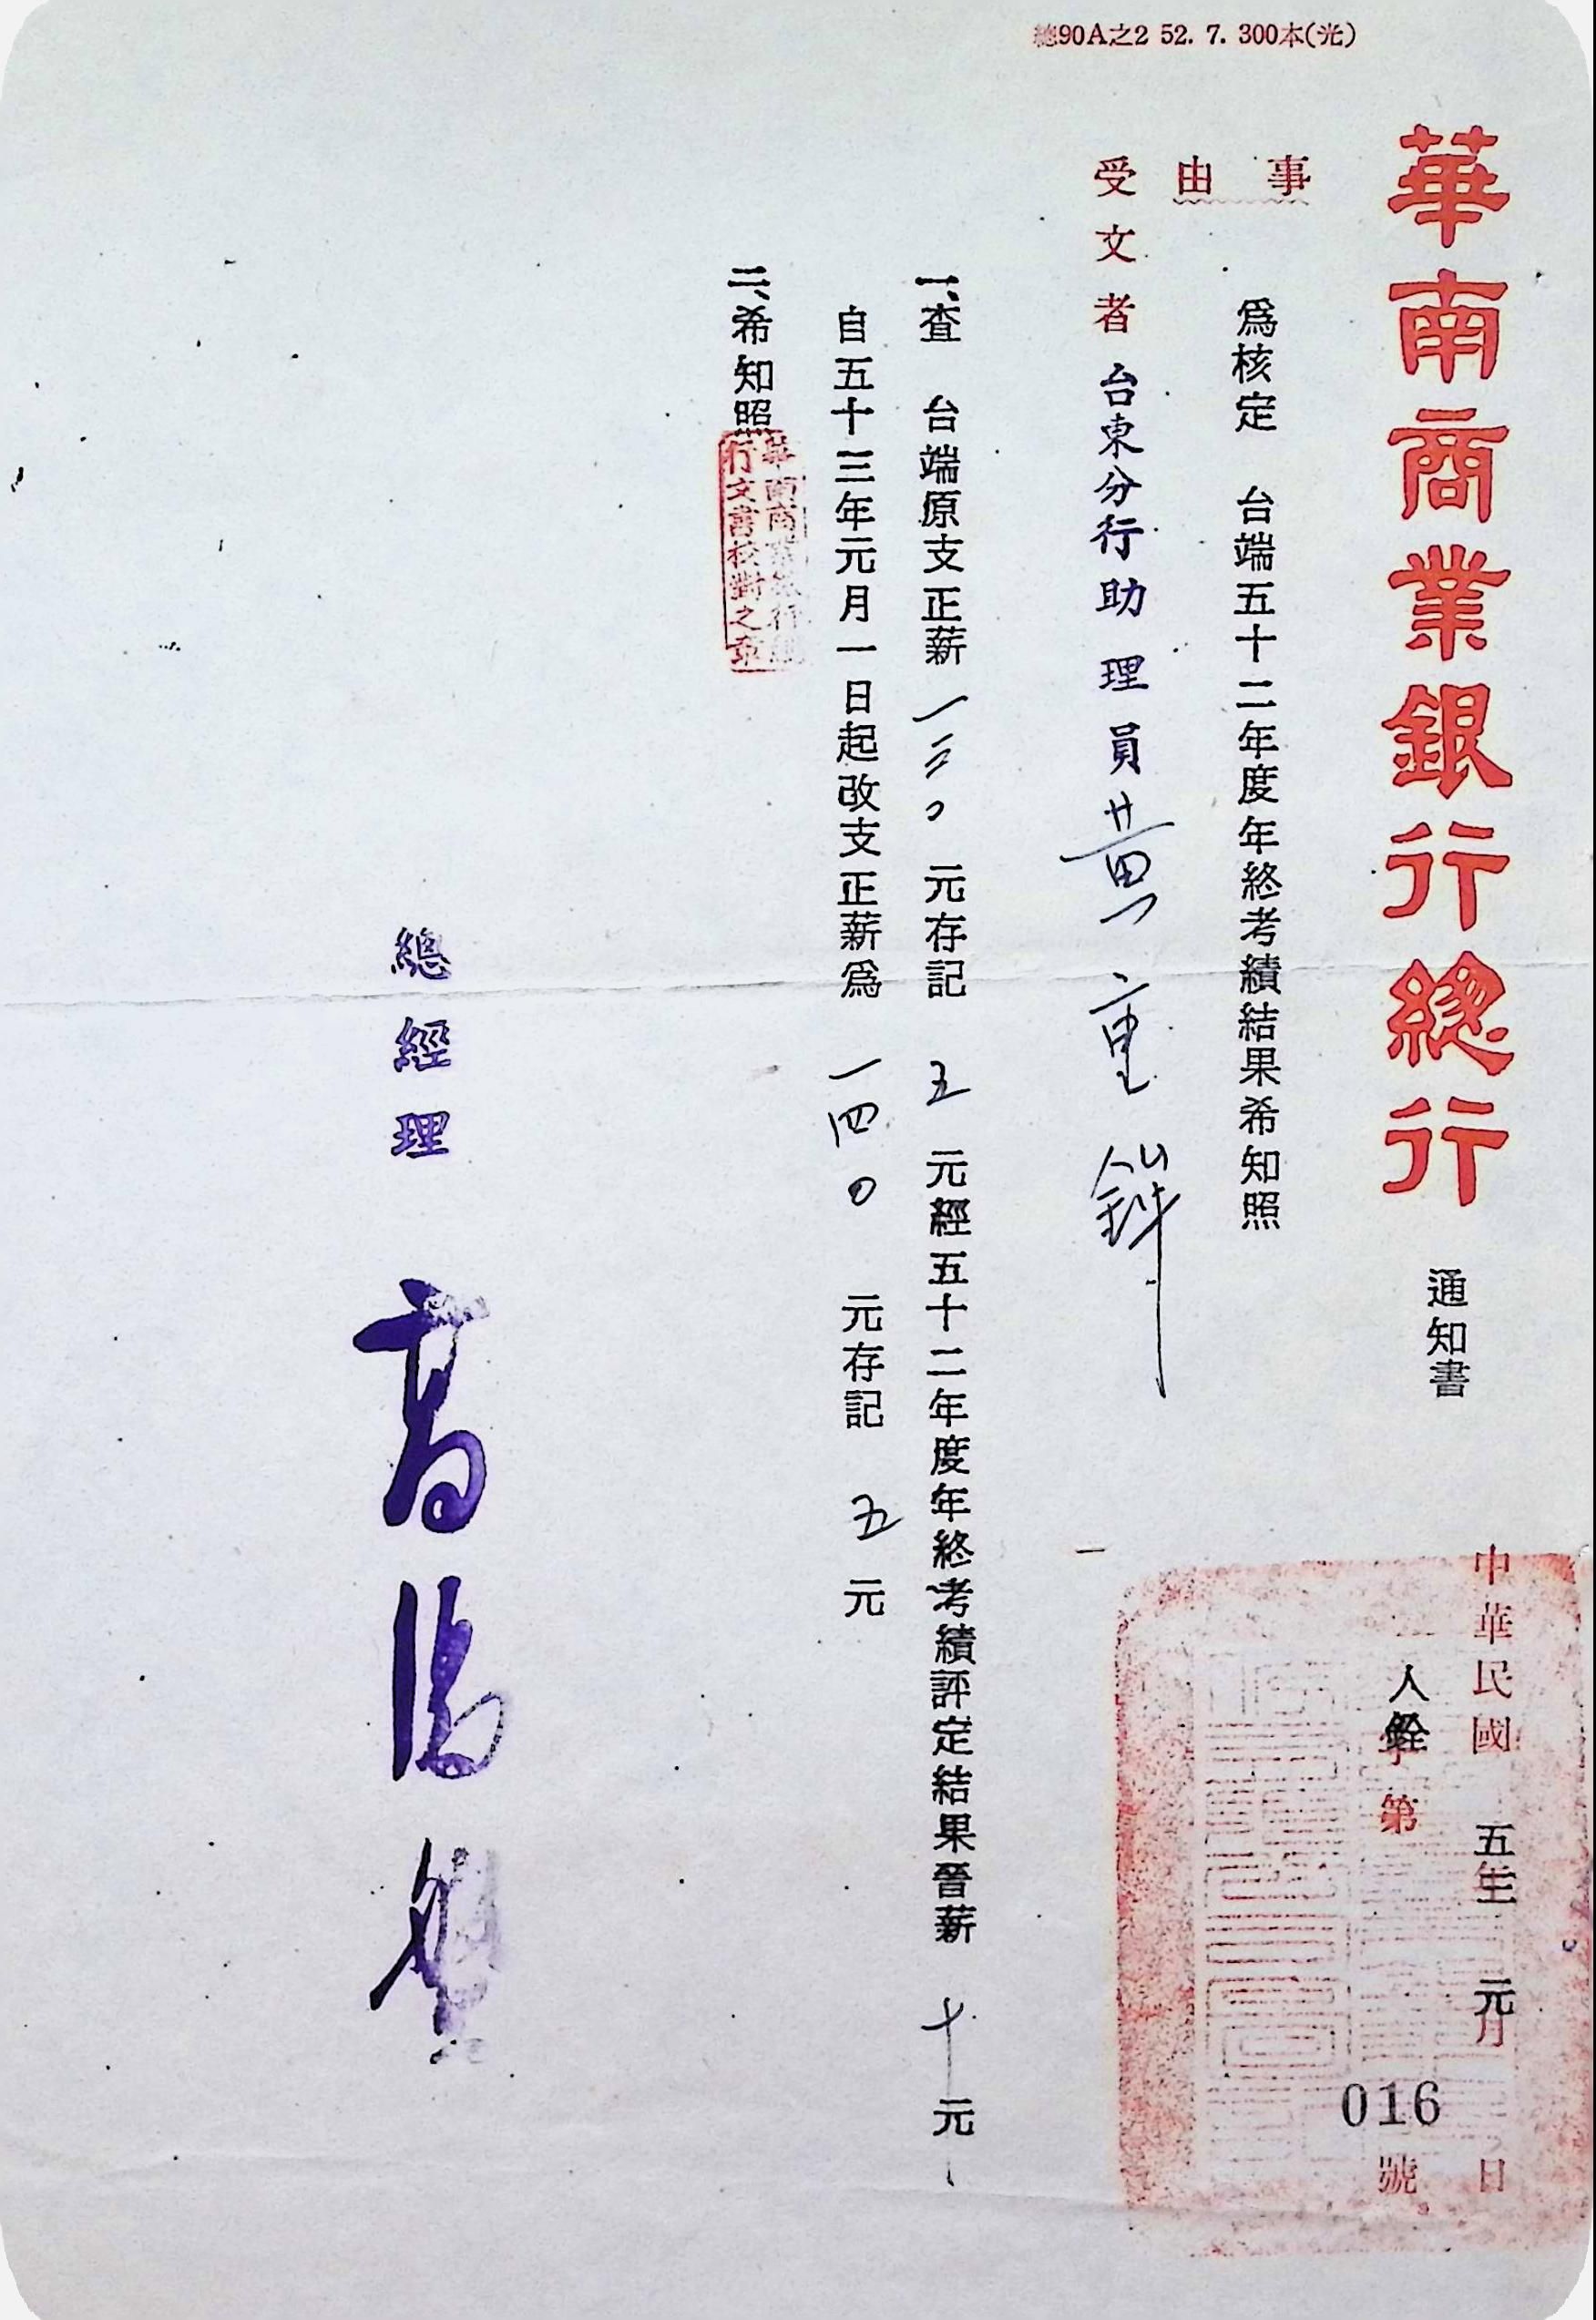 總90A之2 52. 7. 300本(光)
華南商業銀行總行 通知書
中華民國 五 年 元月 日
人銓字第 016 號
事由 為核定 台端五十二年度年終考績結果希知照
受文者 台東分行助理員 黃重鋅
一、查 台端原支正薪一三〇元存記 五 元經五十二年度年終考績評定結果晉薪 十 元
自五十三年元月一日起改支正薪為 一四〇 元存記 五 元
二、希知照
華南商業銀行總
行文書校對之章
總經理 高湯盤